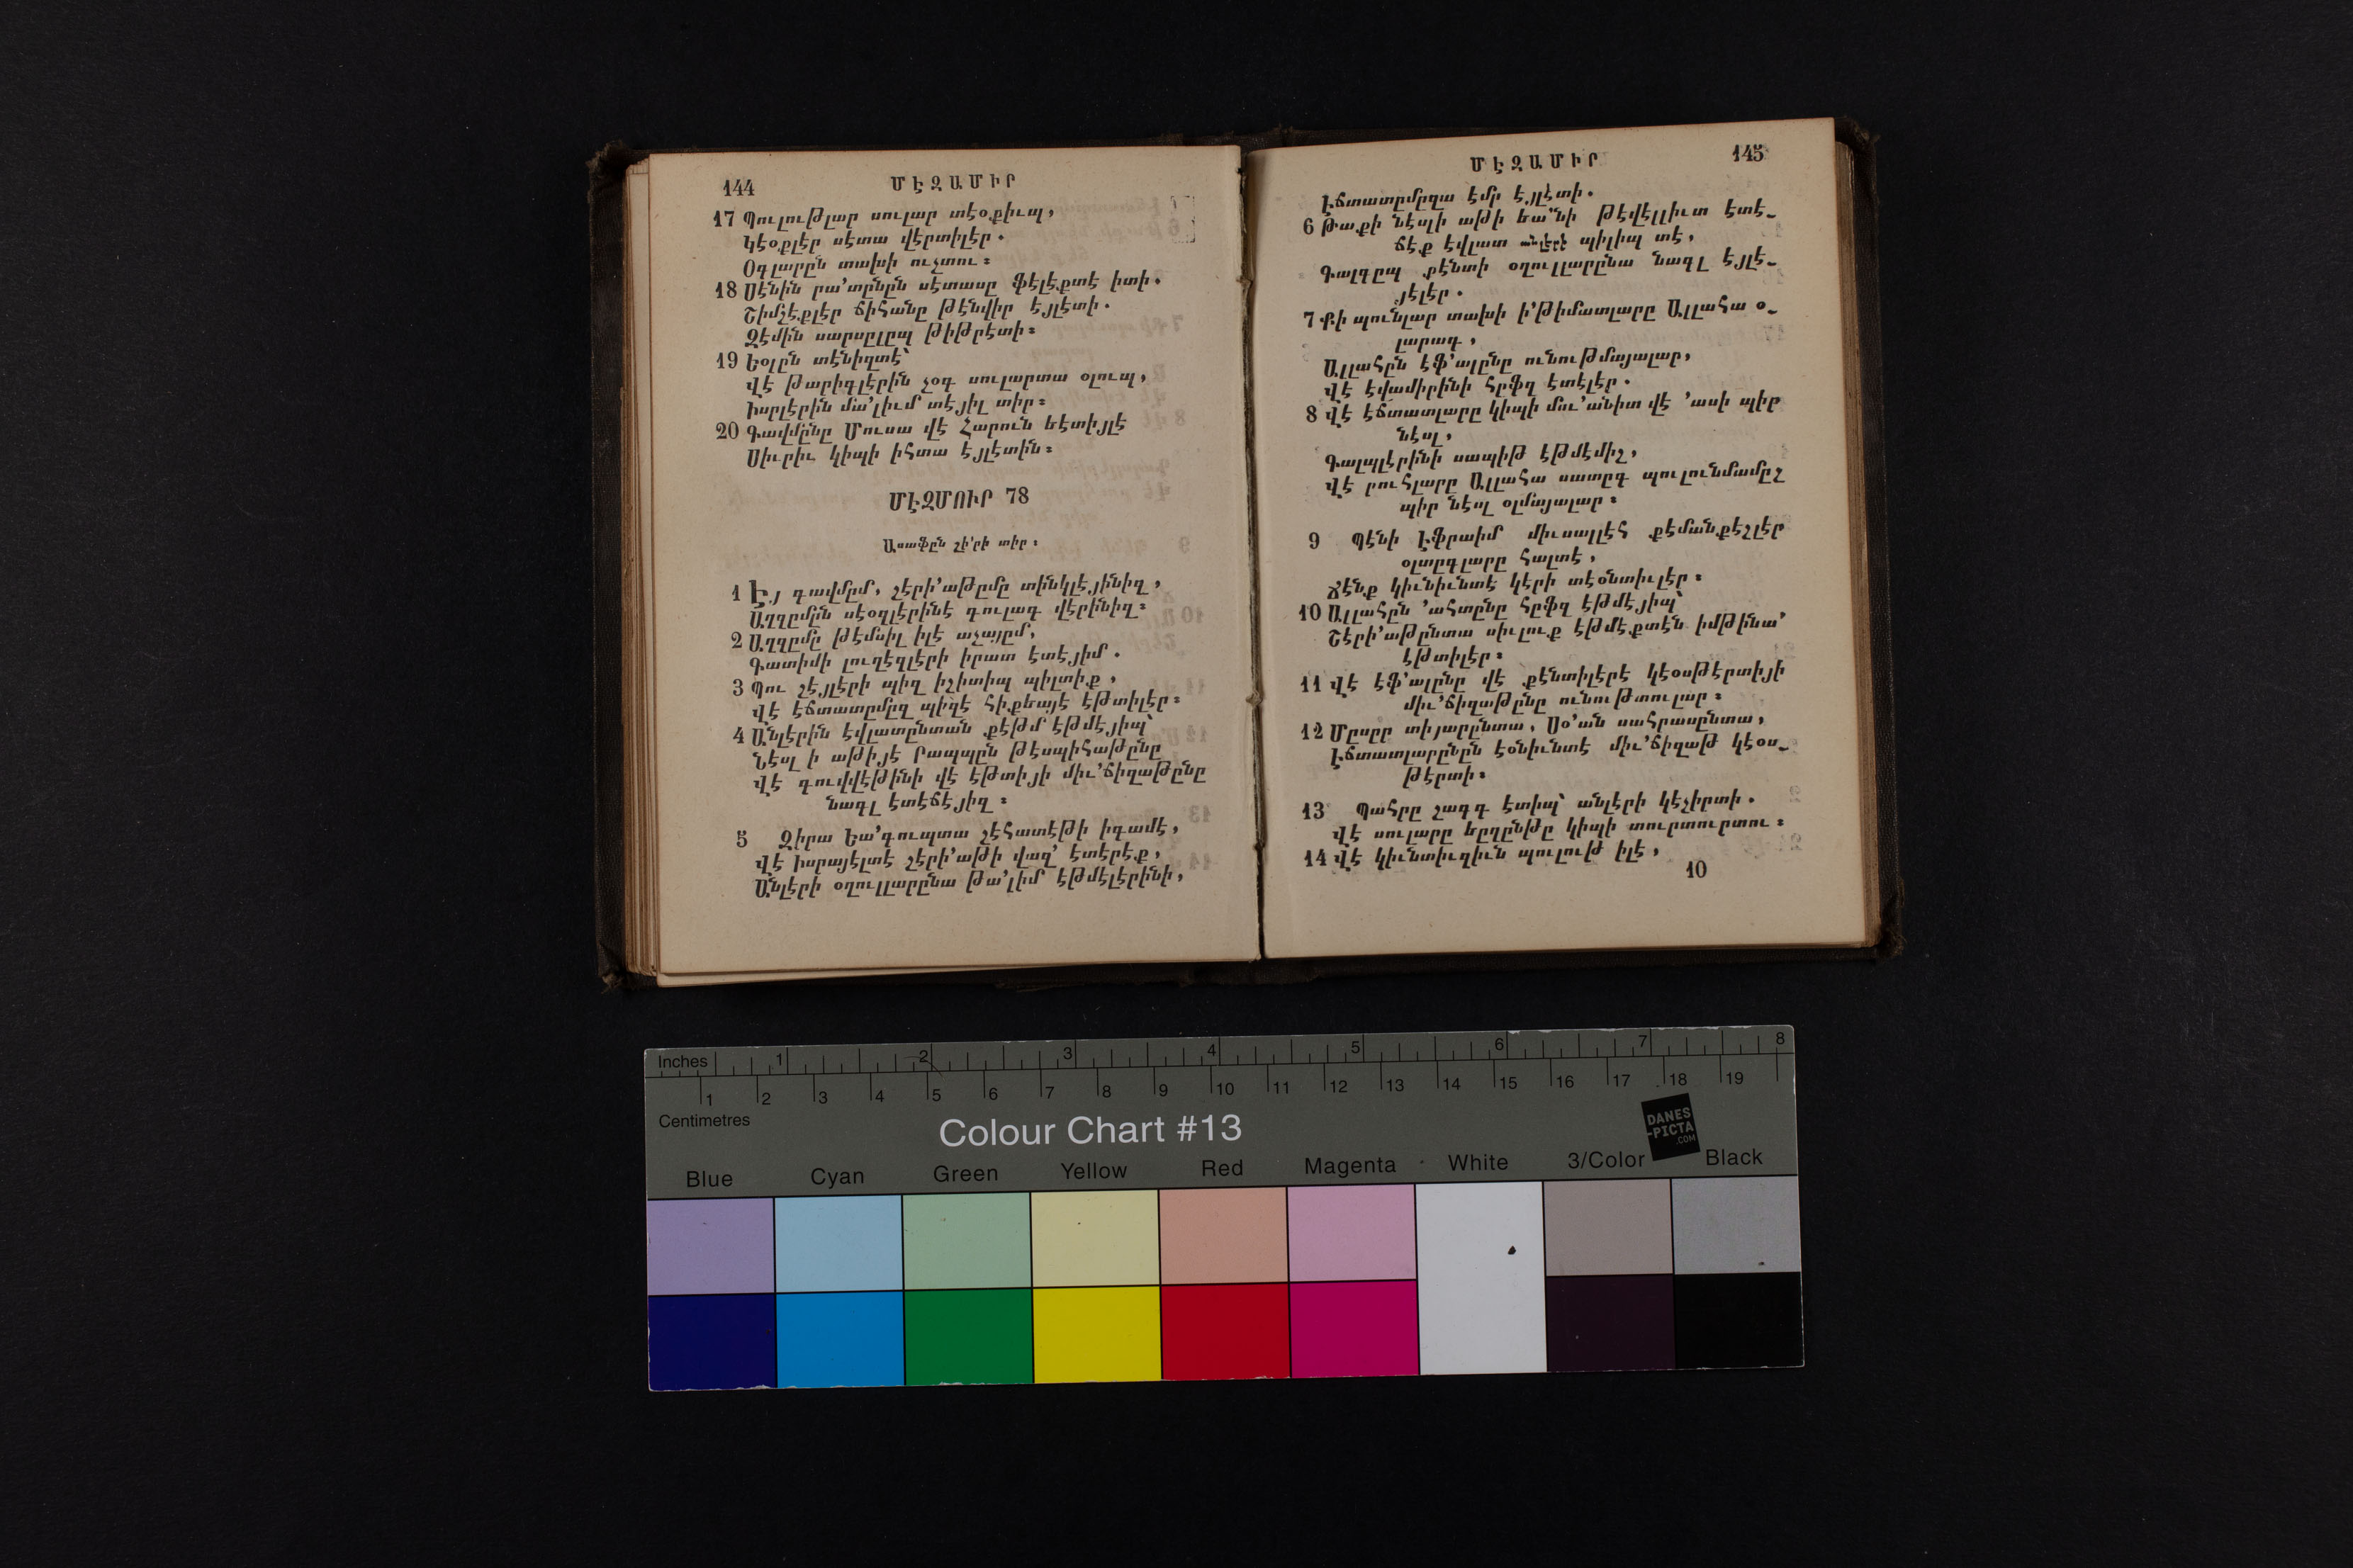 144 ՄԷԶԱՄԻՐ
17 Պուլութլար սուլար տէօքիւպ,
Կէօքլէր սէտա վէրտիլէր.
Օգլարըն տախի ուչտու։
18 Սէնին րա՛տընըն սէտասը ֆէլէքտէ իտի.
Շիմշէքլէր ճիհանը թէնվիր էյլէտի.
Զէմին սարսըլըպ թիթրէտի։
19 Եօլըն տէնիզտէ՝
Վէ թարիգլէրին չօգ սուլարտա օլուպ,
Իսրլէրին մա՛լիւմ տէյիլ տիր։
20 Գավմընը Մուսա վէ Հարուն եէտիյլէ
Սիւրիւ կիպի իհտա էյլէտին։
ՄԷԶՄՈՒՐ 78
Ասաֆըն շի՛րի տիր։
1 Էյ գավմըմ, շէրի՛աթըմը տինկլէյինիզ,
Աղզըմըն սէօզլէրինէ գուլագ վէրինիզ։
2 Աղզըմը թէմսիլ իլէ աչայըմ,
Գատիմի լուղէզլէրի իրատ էտէյիմ.
3 Պու շէյլէրի պիզ իշիտիպ պիլտիք,
Վէ էճտատըմըզ պիզէ հիքեայէ էթտիլէր։
4 Անլէրին էվլատընտան քէթմ էթմէյիպ՝
Նէսլ ի աթիյէ Րապպըն թէսպիհաթընը
Վէ գուվվէթինի վէ էթտիյի միւ՛ճիզաթընը
նագլ էտէճէյիզ։
5 Զիրա Եա՛գուպտա շէհատէթի իգամէ,
Վէ Իսրայէլտէ շէրի՛աթի վազ՛ էտէրէք,
Անլէրի օղուլլարընա թա՛լիմ էթմէլէրինի,
ՄԷԶԱՄԻՐ 145
Էճտատըմըզա էմր էյլէտի.
6 Թաքի նէսլի աթի եա՛՛նի թէվէլլիւտ էտէ-
ճէք էվլատ անլէրէ պիլիպ տէ,
Գալգըպ քէնտի օղուլլարընա նագլ էյլէ-
յէլէր.
7 Քի պունլար տախի ի՛թիմատլարը Ալլահա օ-
լարագ,
Ալլահըն էֆ՛ալընը ունութմայալար,
Վէ էվամիրինի հըֆզ էտէլէր.
8 Վէ էճտատլարը կիպի մու՛անիտ վէ ՛ասի պիր
նէսլ,
Գալպլէրինի սապիթ էթմէմիշ,
Վէ րուհլարը Ալլահա սատըգ պուլունմամըշ
պիր նէսլ օլմայալար։
9 Պէնի Էֆրաիմ միւսալլէհ քէմանքէշլէր
օլարգլարը հալտէ,
Ճէնք կիւնիւնտէ կէրի տէօնտիւլէր։
10 Ալլահըն ՛ահտընը հըֆզ էթմէյիպ՝
Շէրի՛աթընտա սիւլուք էթմէքտէն իմթինա՛
էթտիլէր։
11 Վէ էֆ՛ալընը վէ քէնտիլէրէ կէօսթէրտիյի
միւ՛ճիզաթընը ունութտուլար։
12 Մըսըր տիյարընտա, Սօ՛ան սահրասընտա,
Էճտատլարընըն էօնիւնտէ միւ՛ճիզաթ կէօս-
թէրտի։
13 Պահրը շագգ էտիպ՝ անլէրի կէչիրտի.
Վէ սուլարը եըղընթը կիպի տուրտուրտու։
14 Վէ կիւնտիւզիւն պուլութ իլէ,
10
Inches 1 2 3 4 5 6 7 8
1 2 3 4 5 6 7 8 9 10 11 12 13 14 15 16 17 18 19
Centimetres
Colour Chart #13
DANES
-PICTA
.COM
Blue Cyan Green Yellow Red Magenta White 3/Color Black